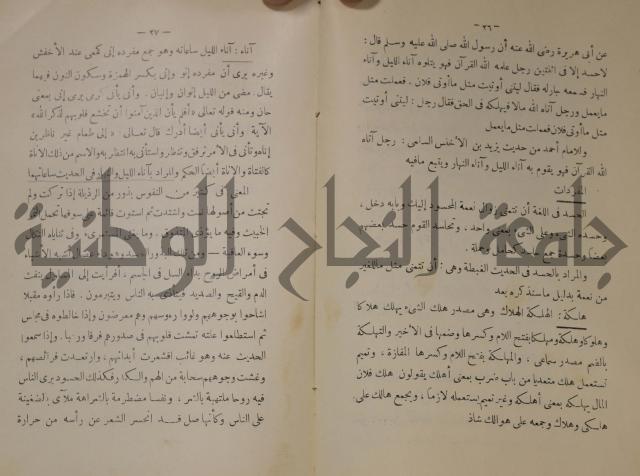 — ٢٦ —
عن أبى هريرة رضى الله عنه أن رسول الله صلى الله عليه وسلم قال :
لاحسد إلا فى اثنتين رجل علمه الله القرآن فهو يتلوه آناء الليل وآناء
النهار فسمعه جار له فقال ليتنى أوتيت مثل ماأوتى فلان . فعملت مثل
مايعمل ورجل آتاه الله مالا فهو يهلكه فى الحق فقال رجل : ليتنى أوتيت
مثل ماأوتى فلان فعملت مثل مايعمل
وللإمام أحمد من حديث يزيد بن الأخنس السلمى : رجل آتاه
الله القرآن فهو يقوم به آناء الليل وآناء النهار ويتبع مافيه
المفردات
الحسد فى اللغة أن تتمنى زوال نعمة المحسود إليك وبابه دخل ،
وحسده الشىء وعلى الشىء بمعنى واحد . وتحاسد القوم حسد بعضهم
بعضا وحسدة جمع حاسد كحامل وحملة .
والمراد بالحسد فى الحديث الغبطة وهى : أن تتمنى مثل ماللغير
من نعمة بدليل ماسنذكره بعد
هلكة : الهلكة الهلاك وهى مصدر هلك الشىء يهلك هلاكا
وهلوكا وهلكة ومهلكا بفتح اللام وكسرها وضمها فى الأخير والتهلكة
بالضم مصدر سماعى ، والمهلكة بفتح اللام وكسرها المفازة ، وتميم
تستعمل هلك متعديا من باب ضرب بمعنى أهلك يقولون هلك فلان
المال يهلكه بمعنى أهلكه وغير تميم يستعمله لازما ، ويجمع هالك على
هلكى وهلاك وجمعه على هوالك شاذ
— ٢٧ —
آناء : آناء الليل ساعاته وهو جمع مفرده إنى كمعى عند الأخفش
وغيره يرى أن مفرده إنو وإنى بكسر الهمزة وسكون النون فيهما
يقال . مضى من الليل إنوان وإنيان . وأنى يأنى كرمى يرمى إنى بمعنى
حان ومنه قوله تعالى « ألم يأن للذين آمنوا أن تخشع قلوبهم لذكر الله »
الآية . وأنى يأنى أيضا أدرك قال تعالى . « إلى طعام غير ناظرين
إناه وتأنى فى الأمر ترفق وتنظر واستأنى به انتظر به والاسم من ذلك الأناة
كالقناة والأناة أيضا الحلم والمراد بآناء الليل والنهار فى الحديث ساعاتهما
المعنى فى كثير من النفوس بذور من الرذيلة إذا تركت ولم
تجتث من أصولها نمت واشتدت ثم استوت قائمة على سوقها تحمل الثمر
الخبيث وفيه ما يؤدى
وسوء العاقبة —
فى أمراض الروح بداء السل فى الجسم ، أفرأيت إلى المسلول ينفث
الدم والقيح والصديد فيتأذى به الناس ويتبرمون . فاذا رأوه مقبلا
أشاحوا بوجوههم ولووا رءوسهم وهم معرضون وإذا خالطوه فى مجلس
ثم استطلعوا علته تمشت قلوبهم فى صدورهم فرقا ورعبا . وإذا سمعوا
الحديث عنه وهو غائب اقشعرت أبدانهم ، وارتعدت فرائصهم ،
وغشت وجوههم سحابة من الهم والكدر فكذلك الحسود يرى الناس
فيه روحا ملتهبة بالشر ، ونفسا مضطرمة بالكراهة ملأى بالضغينة
على الناس وكأنها صل قد انحسر الشعر عن رأسه من حرارة
جامعة النجاح الوطنية